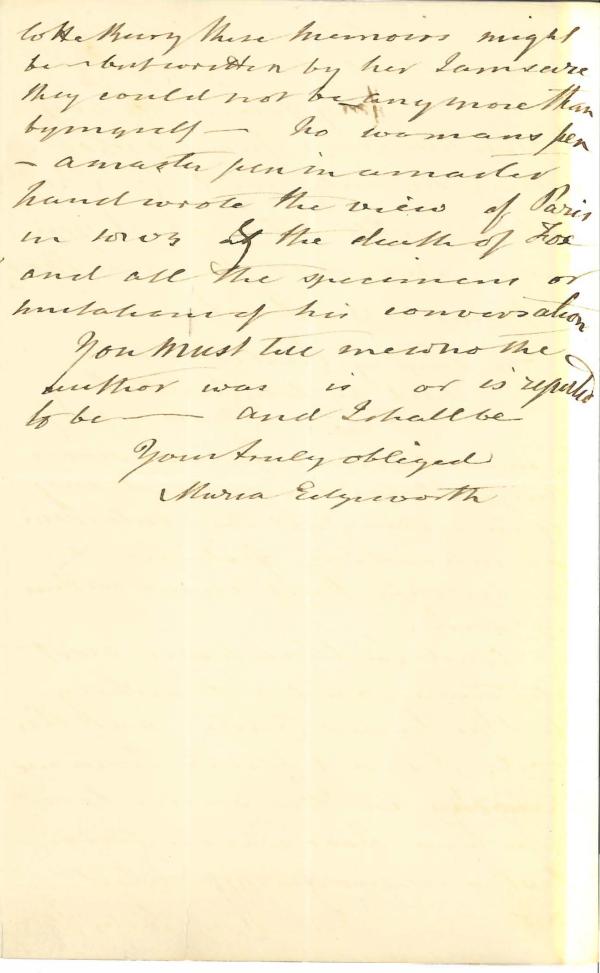 lotte Bury these Memoirs might
be – but written by her I am sure
they could not be any more than
by myself — No womans pen
– a master pen in a master
hand wrote the view of Paris
in the death of Fox
and all the specimens or
imitations of his conversation
You must tell me who the
author was is or is reputed
to be —— and I shall be
Yours truly obliged
Maria Edgeworth